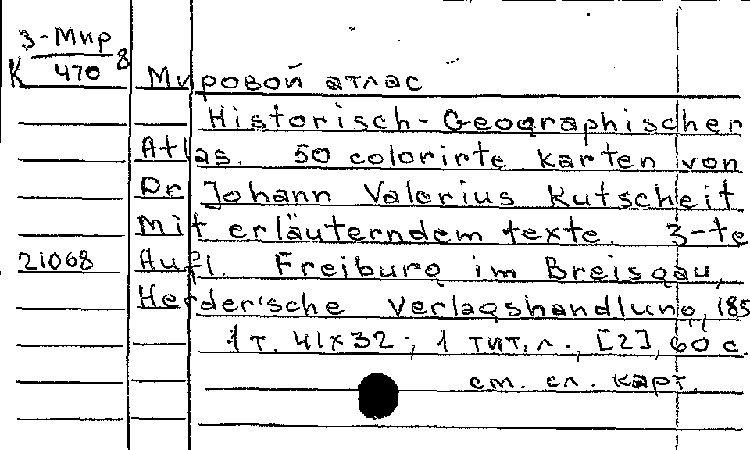 3-Мир
К 470 8
Мировой атлас
Historisch-Geographischer
Atlas. 50 colorirte Karten von
Dr Johann Valerius Kutscheit
Mit erläuterndem texte. 3-te
21068 Aufl. Freiburg im Breisgau,
Herder'sche Verlagshandlung, 185
1 т. 41х32; 1 тит. л., [2], 60 с.
см. сл. карт.